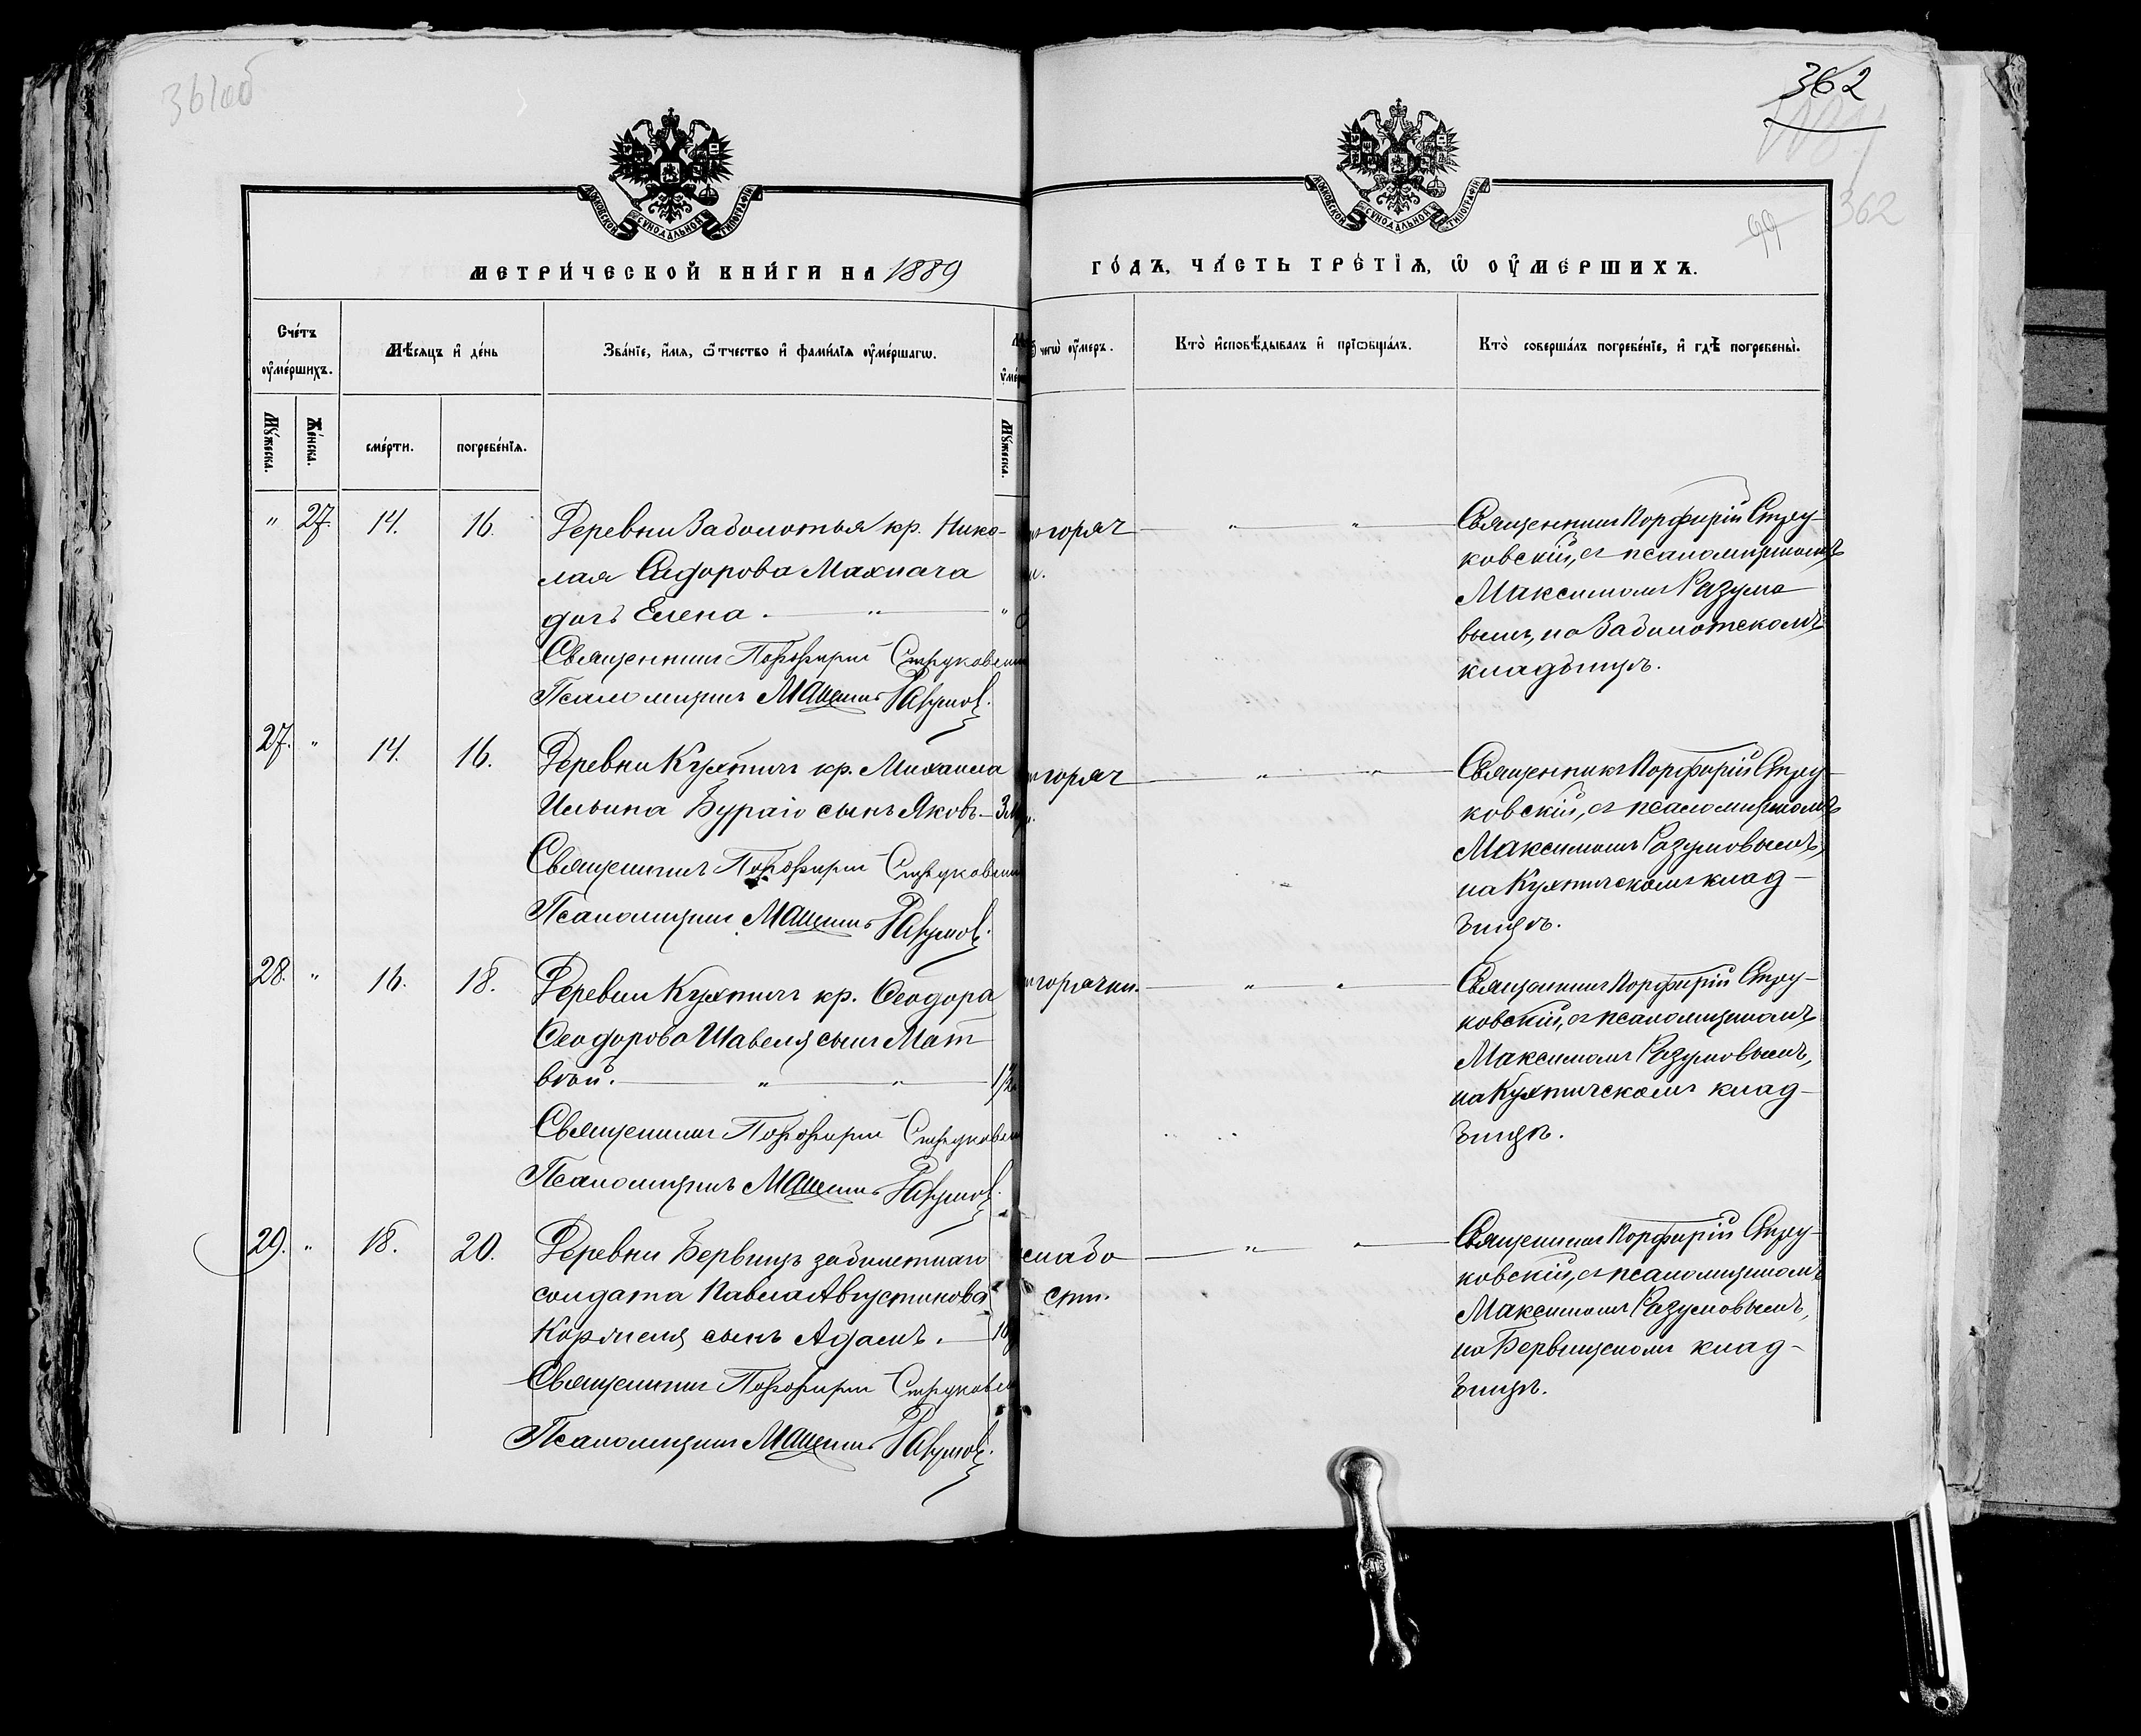 361 об
362
362
99
МОСКОВСКОЙ СѴНОДАЛЬНОЙ ТИПОГРАФІИ
МОСКОВСКОЙ СѴНОДАЛЬНОЙ ТИПОГРАФІИ
МЕТРИ́ЧЕСКОЙ КНИ́ГИ НА 1889
ГО́ДЪ, ЧА́СТЬ ТРЕ́ТІѦ, Ѡ҆ ОУ҆МЕ́РШИХЪ.
Сче́тъ оу҆ме́ршихъ.
Мѣ́сѧцъ и҆ де́нь
Зва́нїе, и҆́мѧ, ѻ҆́тчество и҆ фами́лїѧ оу҆ме́ршагѡ.
чегѡ̀ оу҆́меръ.
Кто̀ и҆сповѣ́дывалъ и҆ прїѡбща́лъ.
Кто̀ соверша́лъ погребе́нїе, и҆ гдѣ̀ погребены̀.
Мꙋ́жеска.
Же́нска.
сме́рти.
погребе́нїѧ.
Мꙋ́жеска.
" 27. 14. 16. Деревни Заболотья кр. Нико-
лая Сидорова Махнача
дочь Елена. — " — "
Священникъ Порфирій Струковскі
Псаломщикъ Максимъ Разумов.
горяч — " " —
Священникъ Порфирій Стру-
ковскій, съ псаломщикомъ
Максимомъ Разумо
вымъ, на Заболотскомъ
кладбищѣ.
27. " 14. 16. Деревни Кухтичъ кр. Михаила
Ильина Бураго сынъ Яковъ. — 3
Священникъ Порфирій Струковскі
Псаломщикъ Максимъ Разумов.
горяч — " " —
Священникъ Порфирій Стру-
ковскій, съ псаломщикомъ
Максимомъ Разумовымъ,
на Кухтичскомъ клад-
бищѣ.
28. " 16. 18. Деревни Кухтичъ кр. Ѳеодора
Ѳеодорова Шавеля сынъ Мат
вѣй. — " — " — 1/2
Священникъ Порфирій Струковскі
Псаломщикъ Максимъ Разумов.
горячки. — " " —
Священникъ Порфирій Стру-
ковскій, съ псаломщикомъ
Максимомъ Разумовымъ,
на Кухтичскомъ клад-
бищѣ.
29. " 18. 20. Деревни Бервищъ забилетнаго
солдата Павла Августинова
сынъ Адамъ. —
Священникъ Порфирій Струковск
Псаломщикъ Максимъ Разумов.
слабо — " " —
сти.
Священникъ Порфирій Стру-
ковскій, съ псаломщикомъ
Максимомъ Разумовымъ,
на Бервищскомъ клад-
бищѣ.